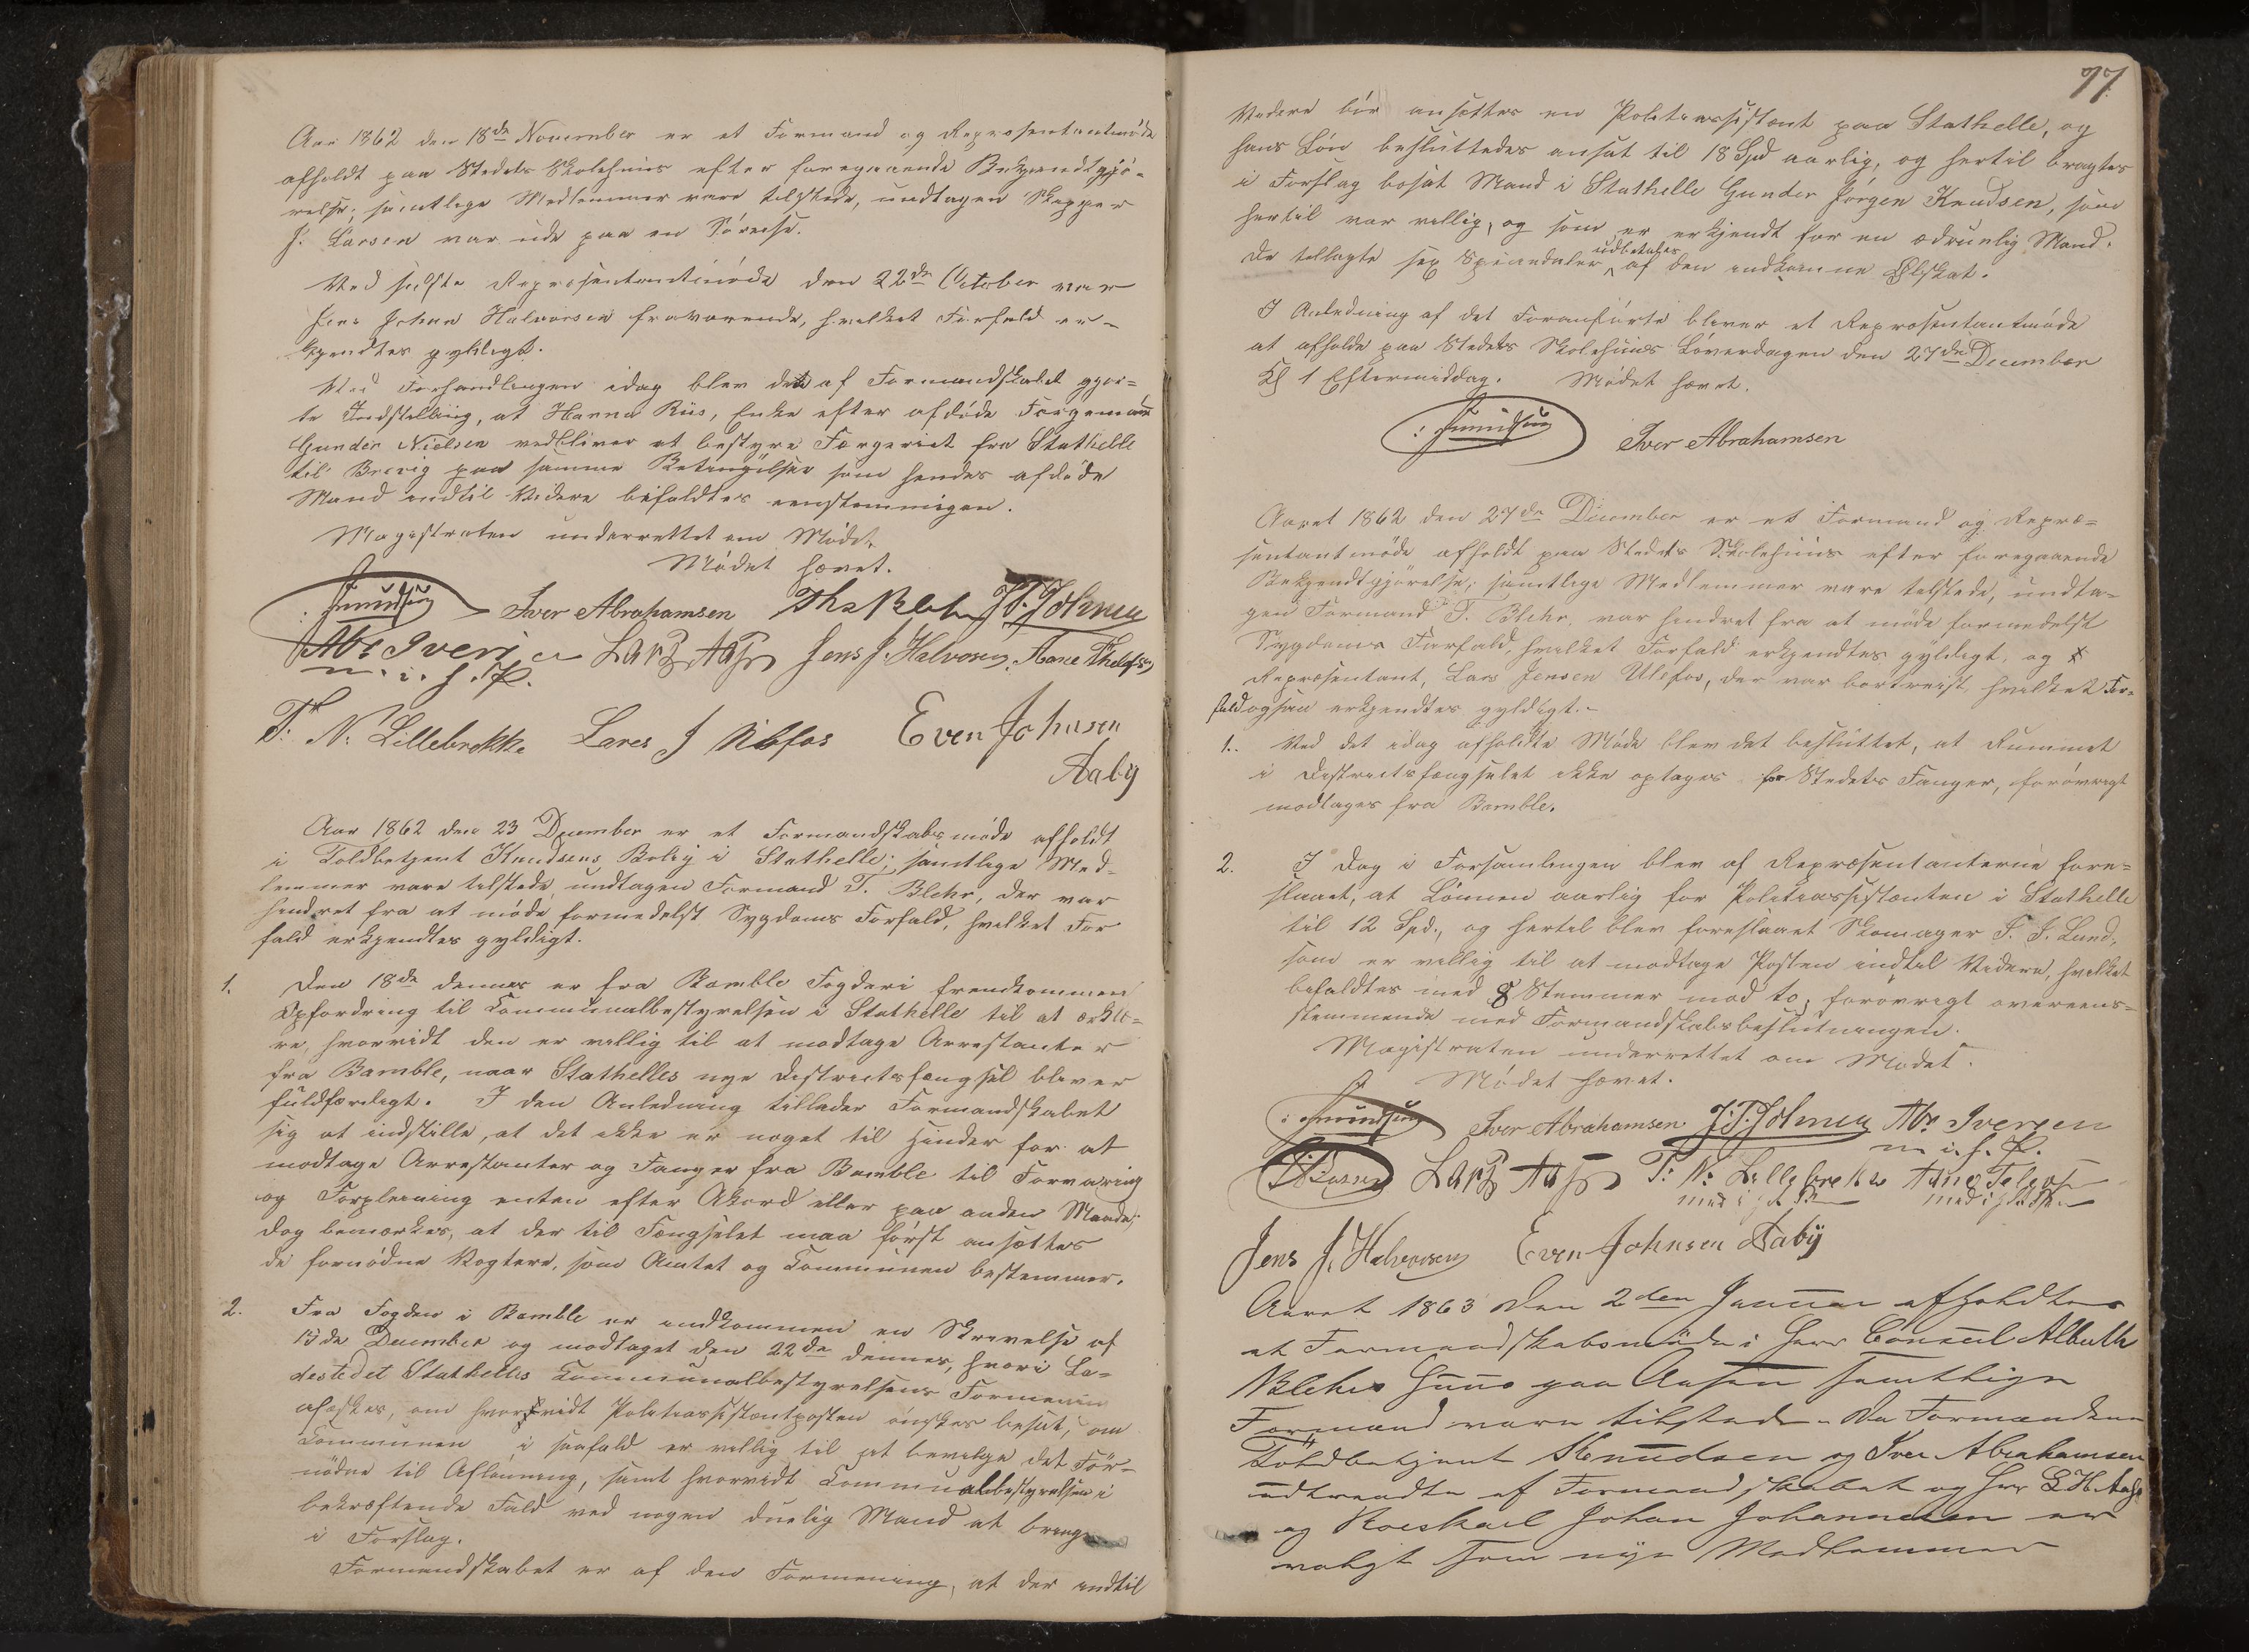 Aar 1862 den 18de November er et Formand og Repræsentantmøde
afholdt paa Stedets Skolehuus efter foregaaende Bekjendtgjö-
relse; samtlige Medlemmer vare tilstede, undtagen Skipper
J. Larsen var ude paa en Söreise.
Ved sidste Repræsentantmöde den 22de October var
Jens Johan Halvorsen fraværende, hvilket Forfald er-
kjendtes gyldigt.
Ved Forhandlingen idag blev det af Formandskabet gjor-
te Indstilling, at Hanna Riis, Enke efter afdöde Færgemann
Gunder Nielsen vedbliver at bestyre Færgeriet fra Stathelle
til Brevig paa samme Betingelser som hendes afdöde
Mand indtil Videre bifaldtes eenstemmigen.
Magistraten underrettet om Mödet.
Mödet hævet.
Iver Abrahamsen Ths Blehr J. T. Johnsen
Abr Iversen Lars Aas Jens J. Halvorsen
m. i. h. P.
T. N. Lillebrekke Lares J Ulefos Even Johnsen
Aaby
Aar 1862 den 23 December er et Formandskabsmöde afholdt
i Toldbetjent Knudsens Bolig i Stathelle; samtlige Med-
lemmer vare tilstede, undtagen Formand T. Blehr, der var
hindret fra at möde formedelst Sygdoms Forfald, hvilket For
fald erkjendtes gyldigt.
1. Den 18de dennes er fra Bamble Fogderi fremkommen
Opfordring til Communalbestyrelsen i Stathelle til at erklæ-
re, hvorvidt den er villig til at modtage Arrestanter
fra Bamble, naar Stathelles nye Districtsfængsel bliver
fuldfærdigt. I den Anledning tillader Formandskabet
sig at indstille, at det ikke er noget til Hinder for at
modtage Arrestanter og Fanger fra Bamble til Forvaring
og Forpleining enten efter Akord eller paa anden Maade;
dog bemærkes, at der til Fængselet maa först ansættes
de fornödne Vogtere, som Amtet og Communen bestemmer.
2. Fra Fogden i Bamble er indkommen en Skrivelse af
13de December og modtaget den 22de dennes, hvori La-
destedet Stathelles Communalbestyrelsens Formening
afæskes, om hvorvidt Politiassistentposten ønskes besat, om
Communen i saafald er villig til at bevilge det For-
nödne til Aflönning, samt hvorvidt Communalbestyrelsen i
bekræftende Fald ved nogen duelig Mand at bringe
i Forslag.
Formandskabet er af den Formening, at der indtil
77
Videre bör ansættes en Politiassistent paa Stathelle, og
hans Lön besluttedes ansat til 18 Spd aarlig, og hertil bragtes
i Forslag bosat Mand i Stathelle Gunder Jörgen Knudsen, som
hertil var villig, og som er erkjendt for en ædruelig Mand.
De tillagte sex Speciedaler udbetales af den indkomne Ølskat.
I Anledning af det Foranförte bliver et Repræsentantmöde
at afholde paa Stedets Skolehuus Löverdagen den 27de December
Kl 1 Eftermiddag. Mödet hævet.
Iver Abrahamsen
Aaret 1862 den 27de December er et Formand og Repræ-
sentantmöde afholdt paa Stedets Skolehuus efter foregaaende
Bekjendtgjörelse; samtlige Medlemmer vare tilstede, undta-
gen Formand T. Blehr, var hindret fra at möde formedelst
Sygdoms Forfald, hvilket Forfald erkjendtes gyldigt, og
Repræsentant, Lars Jensen Ulefos, der var bortreist, hvilket For-
fald ogsaa erkjendtes gyldigt.-
1. Ved det idag afholdte Möde blev det besluttet, at Rummet
i Districtsfængselet ikke optages for Stedets Fanger, forövrigt
modtages fra Bamble.
2. I Dag i Forsamlingen blev af Repræsentanterne fore-
slaaet, at Lönnen aarlig for Politiassistenten i Stathelle
til 12 Spd., og hertil blev foreslaaet Skomager F. J. Lund,
som er villig til at modtage Posten indtil Videre, hvilket
bifaldtes med 8 Stemmer mod to, forövrigt overeens-
stemmende med Formandskabsbeslutningen.
Magistraten underrettet om Mödet.
Mödet hævet.
Iver Abrahamsen J. T. Johnsen Abr Iversen
m. i. h. P.
Lars Aas T. N. Lillebrekke
Jens J. Halvorsen Even Johnsen Aaby
Aaret 1863 den 2den Januar afholdtes
et Formandskabsmöde i Herr Consul Albreth
Blehrs Huus paa Aasen samtlige
Formænd vare tilstede. Da Formændene
Toldbetjent Knudsen og Iver Abrahamsen
udtraadte af Formandskabet og Herr L H Aas
og Roeskarl Johan Johannesen er
valgt som nye Medlemmer